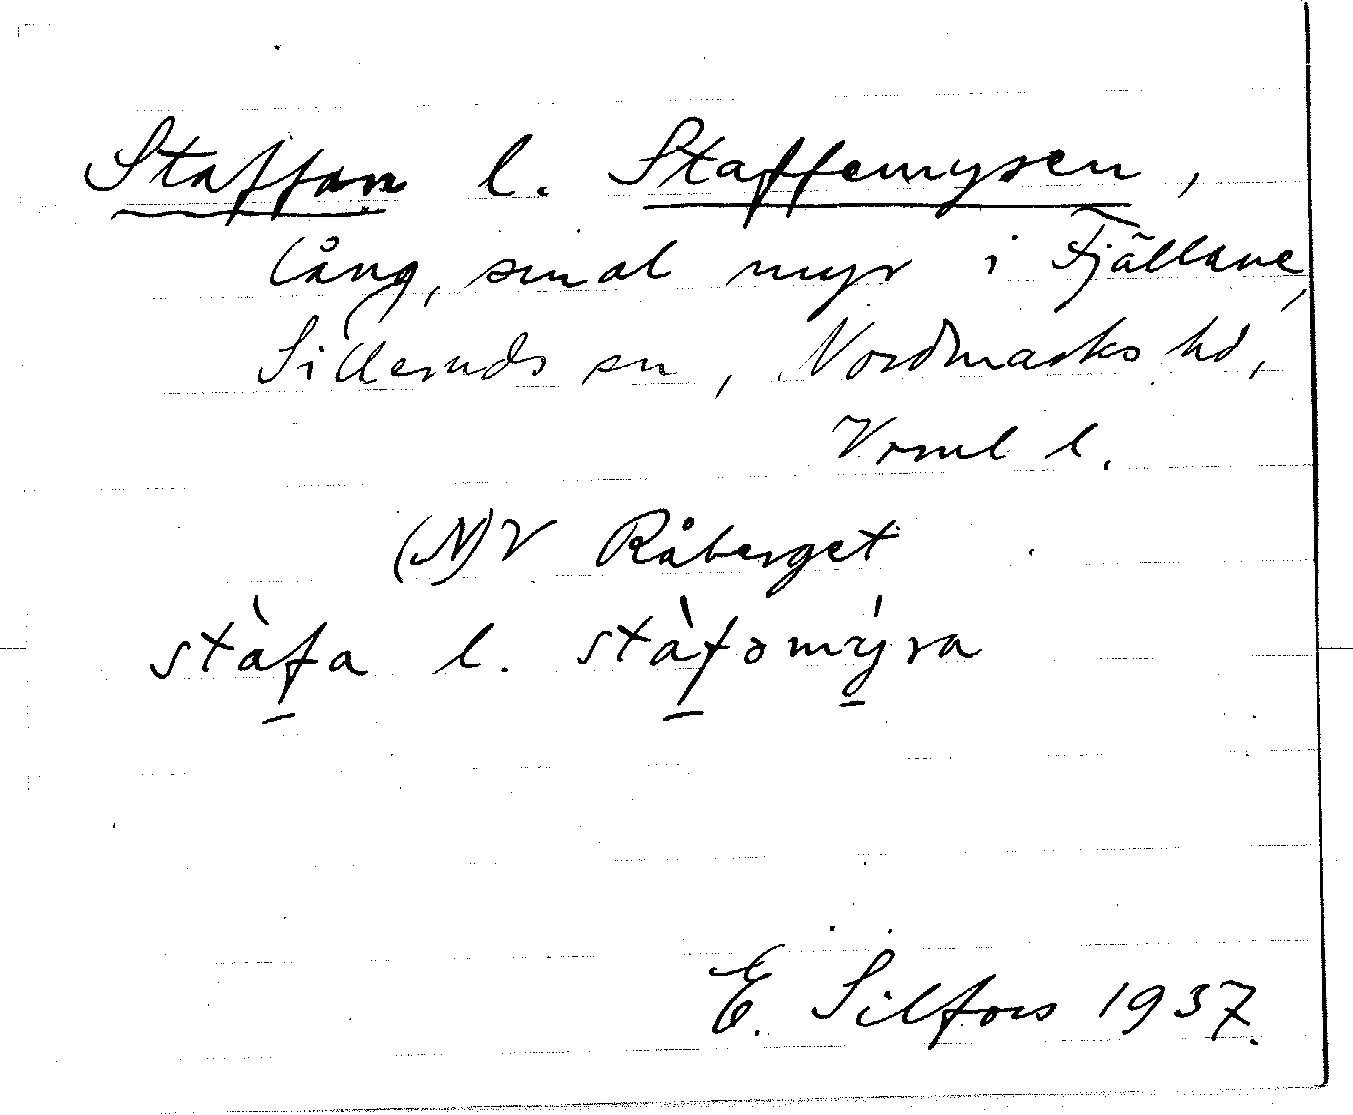 Staffan l. Staffemyren,
lång, smal myr i Fjällane,
Silleruds sn, Nordmarks hd,
Vrml l.
(N)V Råberget
stàfa l. stàfəmýra
E. Silfors 1937.